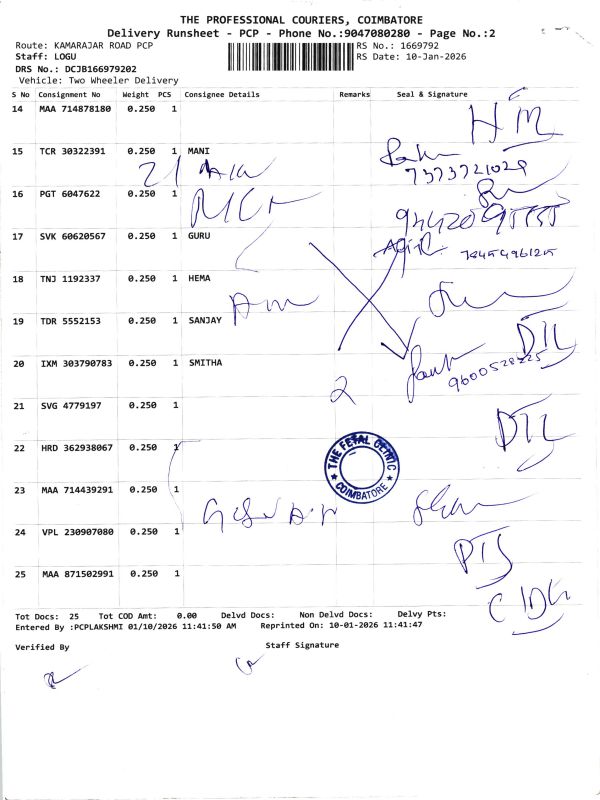 THE PROFESSIONAL COURIERS, COIMBATORE
Delivery Runsheet - PCP - Phone No.:9047080280 - Page No.:2
Route: KAMARAJAR ROAD PCP
RS No.: 1669792
Staff: LOGU
RS Date: 10-Jan-2026
DRS No.: DCJB166979202
Vehicle: Two Wheeler Delivery
S No Consignment No Weight PCS Consignee Details Remarks Seal & Signature
14 MAA 714878180 0.250 1
15 TCR 30322391 0.250 1 MANI
7373721029
16 PGT 6047622 0.250 1
17 SVK 60620567 0.250 1 GURU
18 TNJ 1192337 0.250 1 HEMA
19 TDR 5552153 0.250 1 SANJAY
DTL
20 IXM 303790783 0.250 1 SMITHA
2
21 SVG 4779197 0.250 1
DTL
22 HRD 362938067 0.250 1
THE FETAL CLINIC
COIMBATORE
23 MAA 714439291 0.250 1
24 VPL 230907080 0.250 1
25 MAA 871502991 0.250 1
Tot Docs: 25 Tot COD Amt: 0.00 Delvd Docs: Non Delvd Docs: Delvy Pts:
Entered By :PCPLAKSHMI 01/10/2026 11:41:50 AM Reprinted On: 10-01-2026 11:41:47
Verified By
Staff Signature